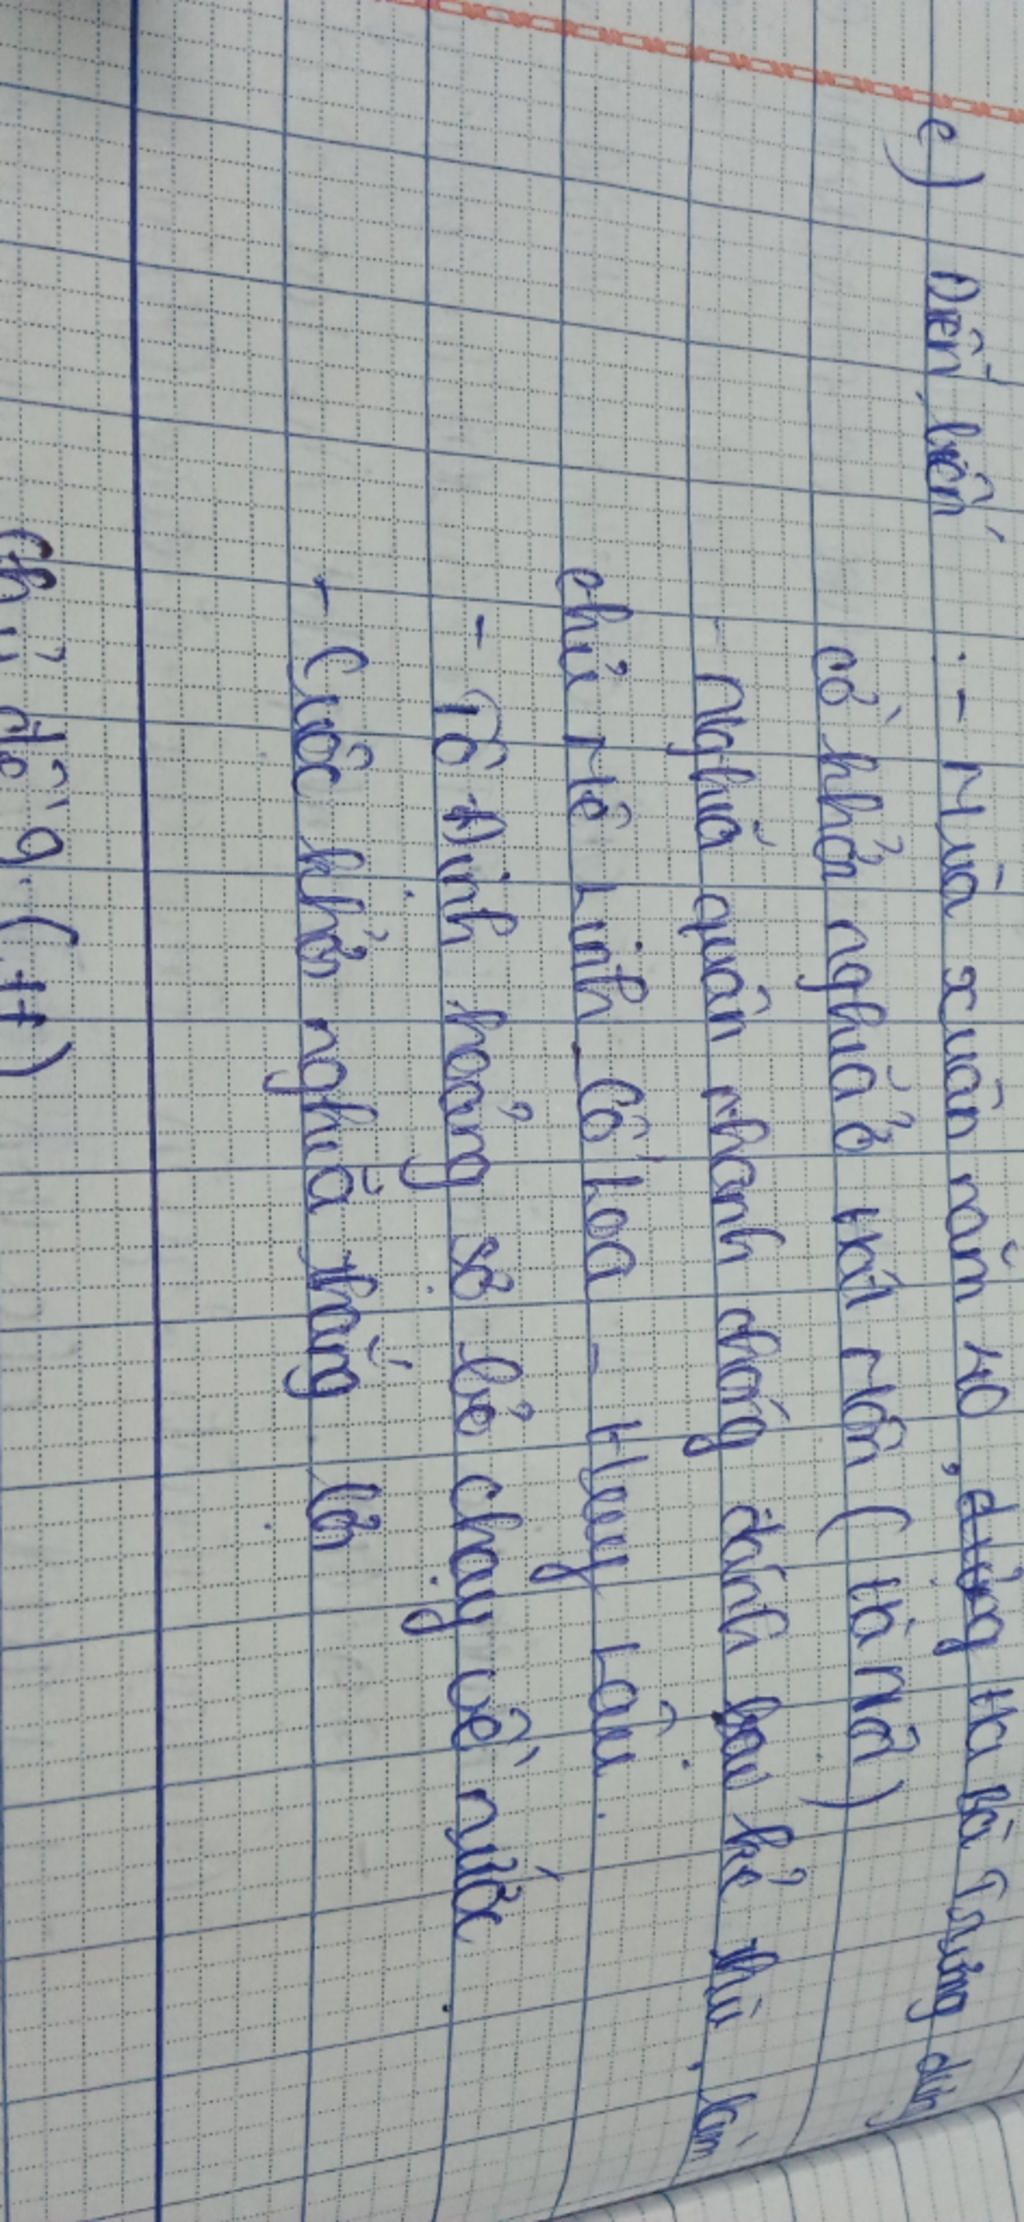 c) Diễn biến : - Mùa xuân năm 40, đứng Hai Bà Trưng dựng
cờ khởi nghĩa ở Hát Môn (Hà Nội)
- Nghĩa quân nhanh chóng đánh bại kẻ thù, làm
chủ Mê Linh - Cổ Loa - Huy Lâu.
- Tô Định hoảng sợ bỏ chạy về nước.
- Cuộc khởi nghĩa thắng lợi
Chủ đề 9. (tt)